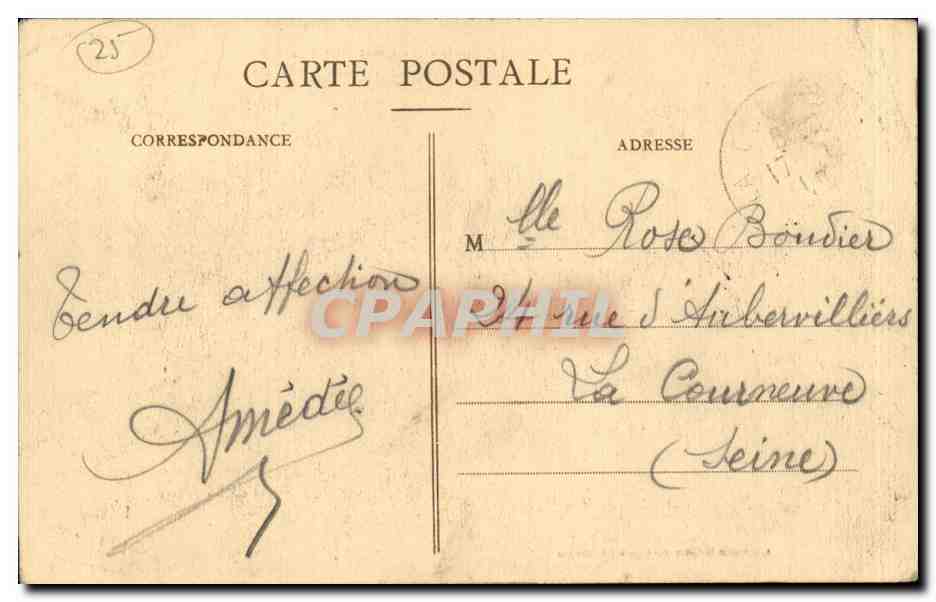 25
CARTE POSTALE
CORRESPONDANCE
ADRESSE
17
Mlle Rose Boudier
24 rue d'Aubervilliers
La Courneuve
(Seine)
Tendre affection
Amédée
CPAPHIL